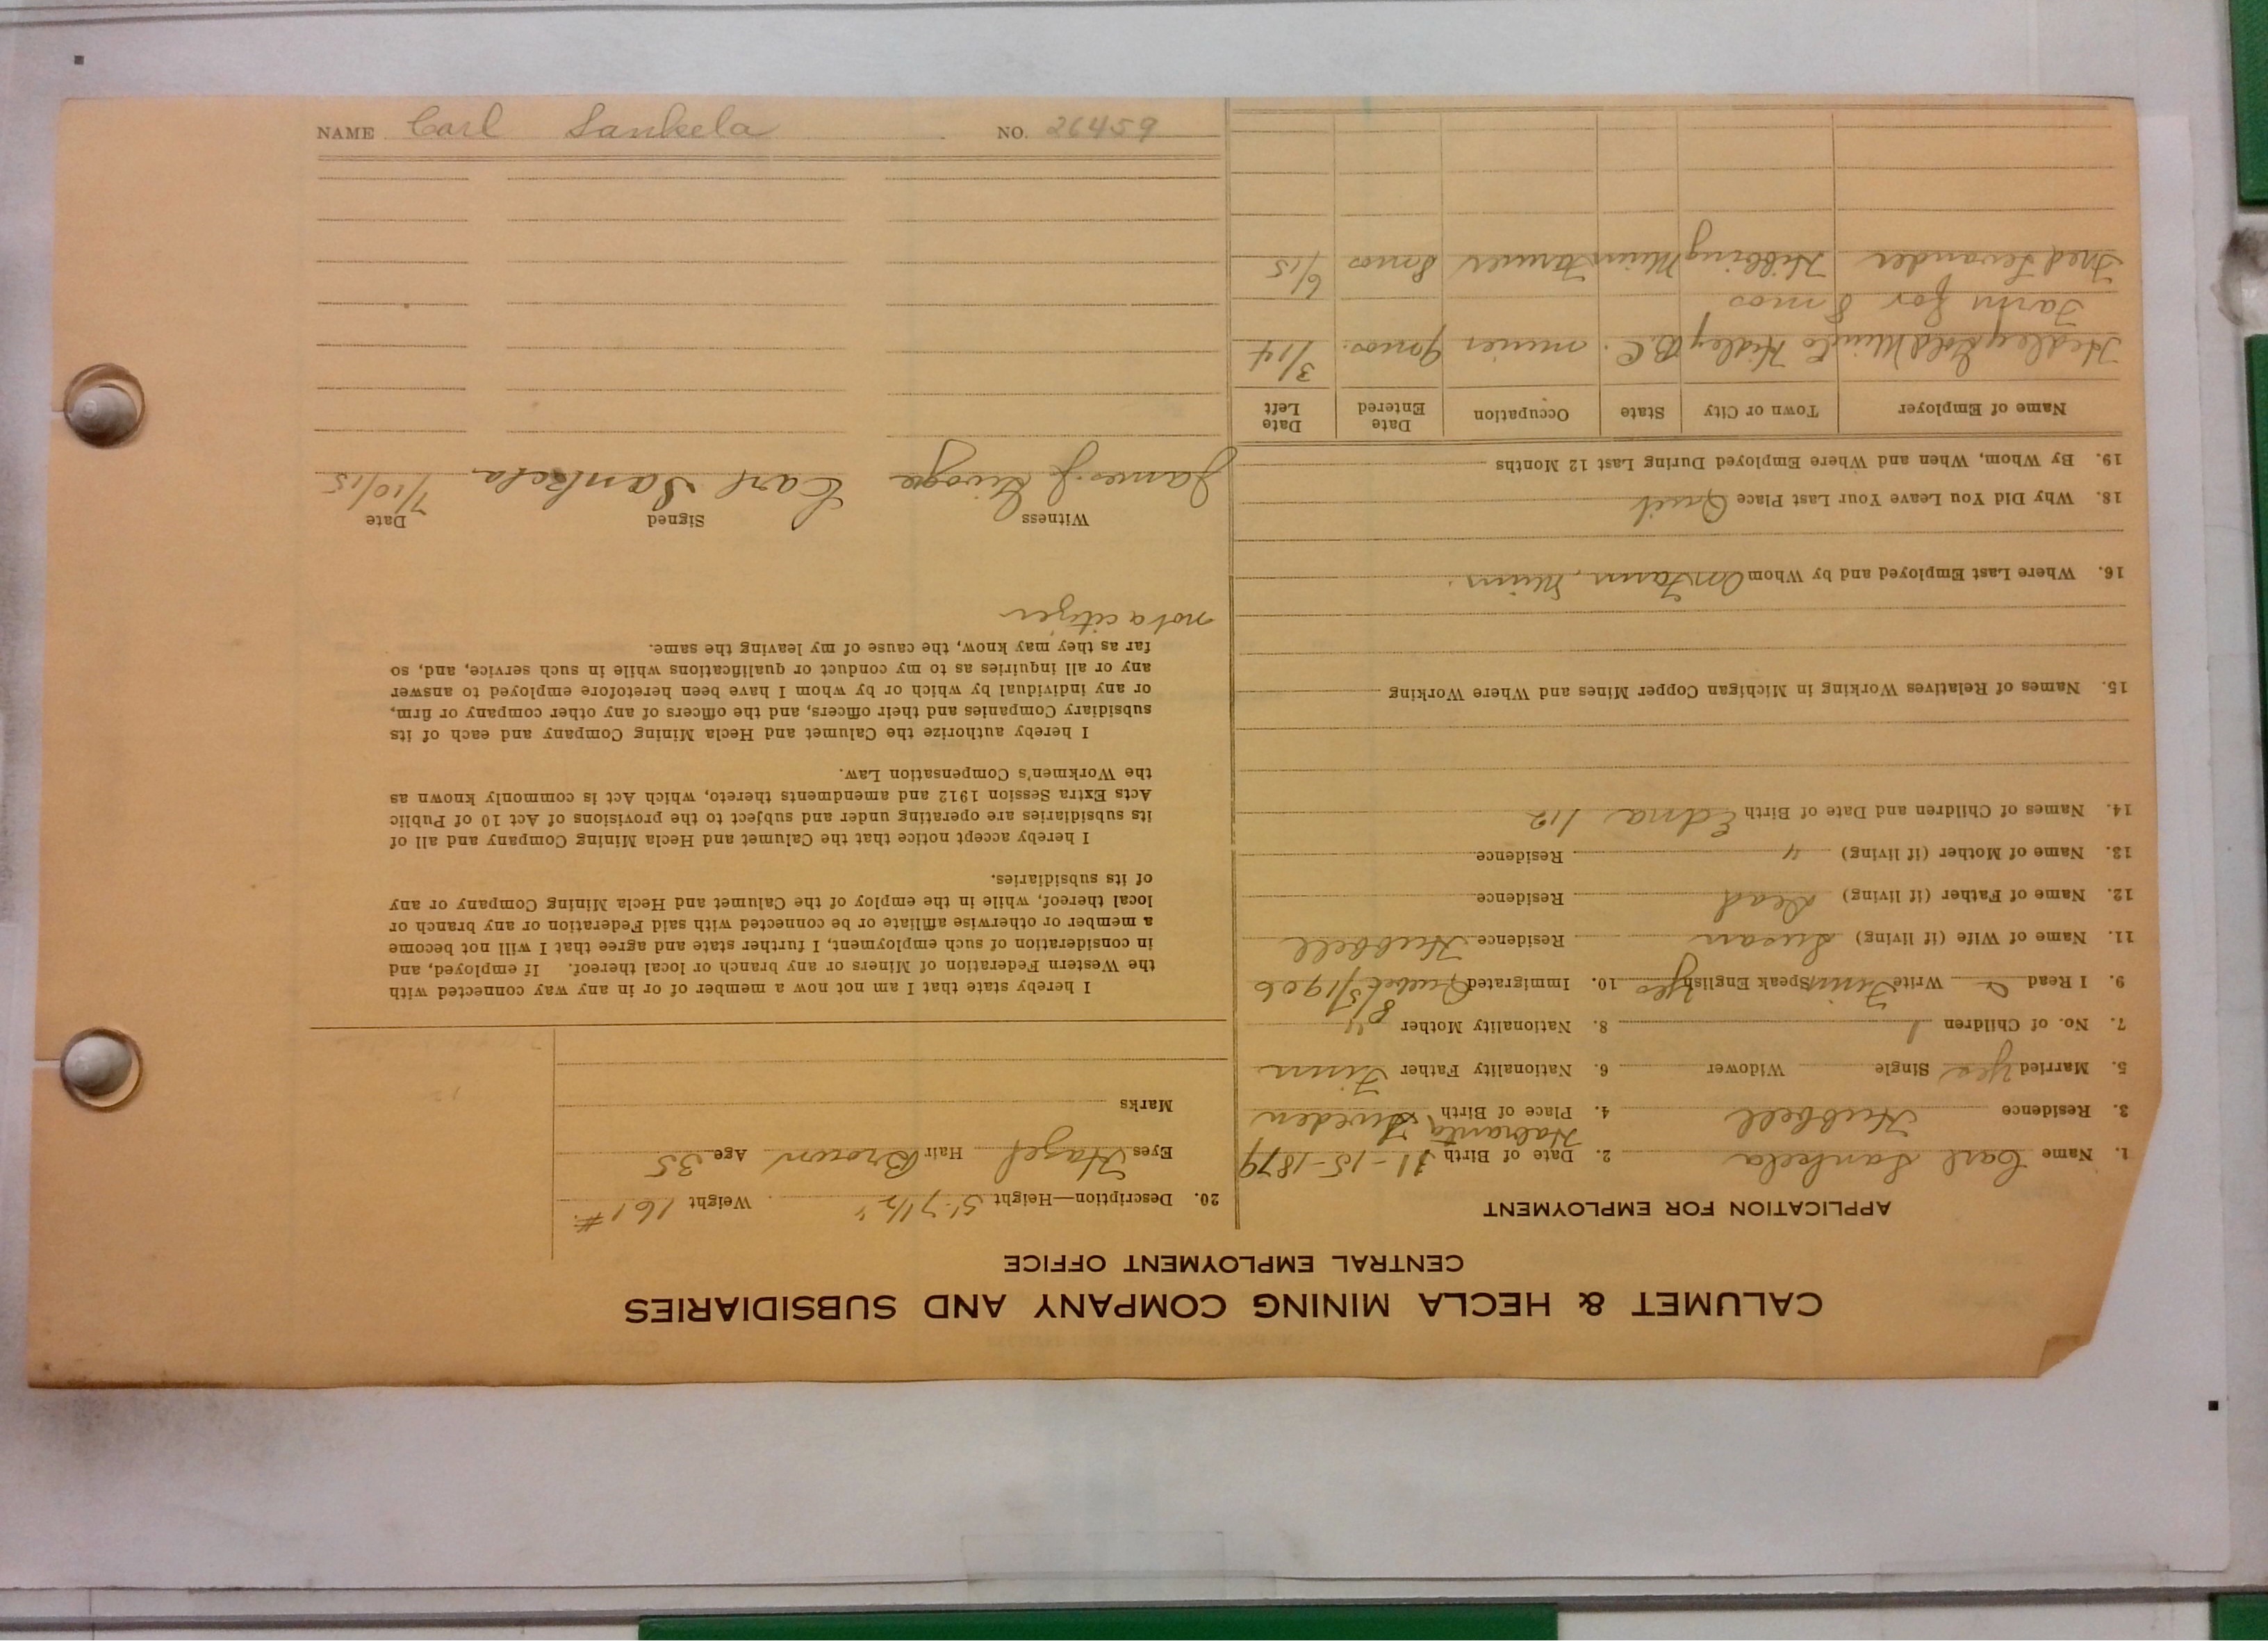 CALUMET & HECLA MINING COMPANY AND SUBSIDIARIES
CENTRAL EMPLOYMENT OFFICE
APPLICATION FOR EMPLOYMENT
1. Name Carl Sankela 2. Date of Birth 11-15-1879
3. Residence Hubbell 4. Place of Birth Sweden
5. Married yes Single Widower 6. Nationality Father Finn
7. No. of Children 1 8. Nationality Mother "
9. I Read Write Finn Speak English yes 10. Immigrated Quebec 8/5/1906
11. Name of Wife (if living) Susan Residence Hubbell
12. Name of Father (if living) Dead Residence
13. Name of Mother (if living) " Residence
14. Names of Children and Date of Birth Edna 1/2
15. Names of Relatives Working in Michigan Copper Mines and Where Working
16. Where Last Employed and by Whom On Farm, Minn.
18. Why Did You Leave Your Last Place Quit
19. By Whom, When and Where Employed During Last 12 Months
Name of Employer Town or City State Occupation Date Entered Date Left
Hedley Gold Mine Co Hedley B.C. miner 9 mos. 3/14
Farm for 8 mos
Fred Hibbing Minn Farmer 8 mos 6/15
20. Description—Height 5'-7 1/2" Weight 161#
Eyes Hazel Hair Brown Age 35
Marks
I hereby state that I am not now a member of or in any way connected with
the Western Federation of Miners or any branch or local thereof. If employed, and
in consideration of such employment, I further state and agree that I will not become
a member or otherwise affiliate or be connected with said Federation or any branch or
local thereof, while in the employ of the Calumet and Hecla Mining Company or any
of its subsidiaries.
I hereby accept notice that the Calumet and Hecla Mining Company and all of
its subsidiaries are operating under and subject to the provisions of Act 10 of Public
Acts Extra Session 1912 and amendments thereto, which Act is commonly known as
the Workmen's Compensation Law.
I hereby authorize the Calumet and Hecla Mining Company and each of its
subsidiary Companies and their officers, and the officers of any other company or firm,
or any individual by which or by whom I have been heretofore employed to answer
any or all inquiries as to my conduct or qualifications while in such service, and, so
far as they may know, the cause of my leaving the same.
not a citizen
Witness Signed Date
James J. Carl Sankela 7/10/15
NAME Carl Sankela NO. 26459